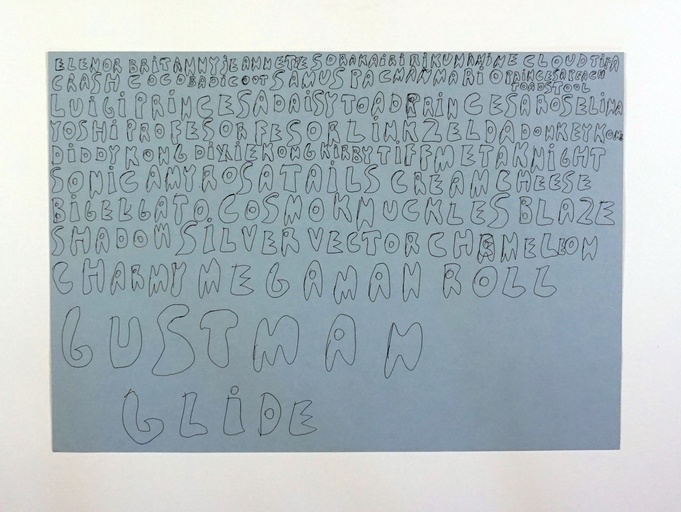 ELENOR BRITANNY JEANNETTE SORA KAIRI RIKU NAMINE CLOUD TIFA
CRASH COCO BADICOOT SAMUS PACMAN MARIO PRINCESA PEACH
TOADSTOOL
LUIGI PRINCESA DAISY TOAD PRINCESA ROSELINA
YOSHI PROFESOR FESOR LINK ZELDA DONKEY KONG
DIDDY KONG DIXIE KONG KIRBY TIFF METAKNIGHT
SONIC AMY ROSA TAILS CREAM CHEESE
BIG EL GATO COSMO KNUCKLES BLAZE
SHADOW SILVER VECTOR CHAMELEON
CHARMY MEGAMAN ROLL
GUSTMAN
GLIDE